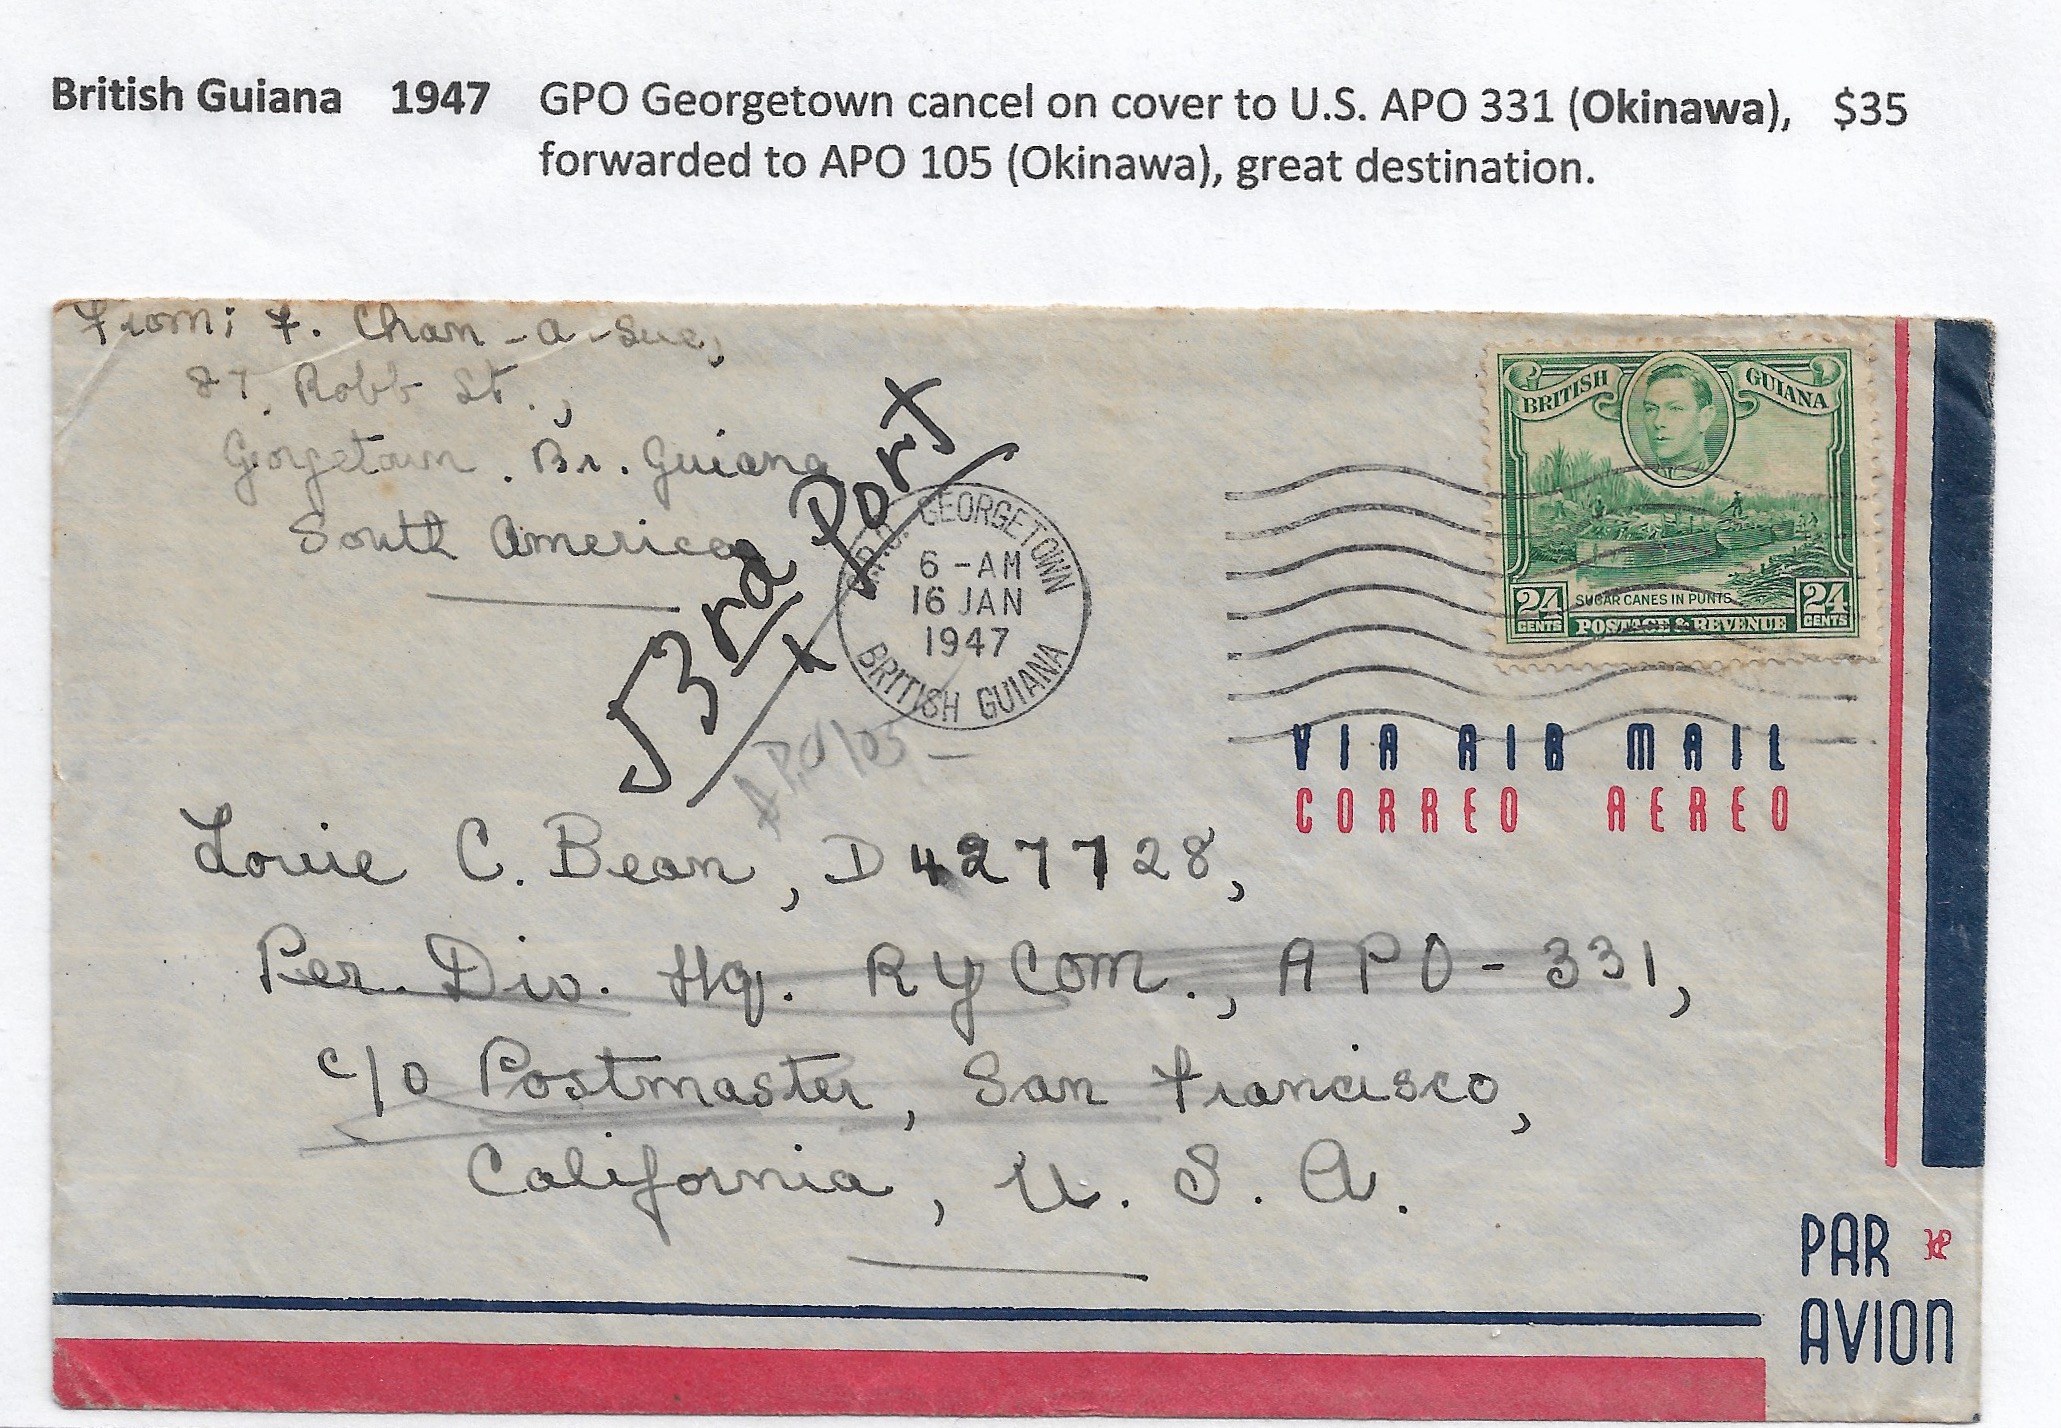 British Guiana 1947 GPO Georgetown cancel on cover to U.S. APO 331 (Okinawa), $35
forwarded to APO 105 (Okinawa), great destination.
From; F. Cham-a-Sue,
87, Robb St.,
Georgetown. Br. Guiana
South America
53rd Port
A.P.O 105 -
G.P.O. GEORGETOWN
6 -AM
16 JAN
1947
BRITISH GUIANA
BRITISH GUIANA
24 CENTS SUGAR CANES IN PUNTS 24 CENTS
POSTAGE & REVENUE
VIA AIR MAIL
CORREO AEREO
Louie C. Bean, D427728,
Per. Div. Hq. RYCOM., APO-331,
c/o Postmaster, San Francisco,
California, U.S.A.
PAR
AVION